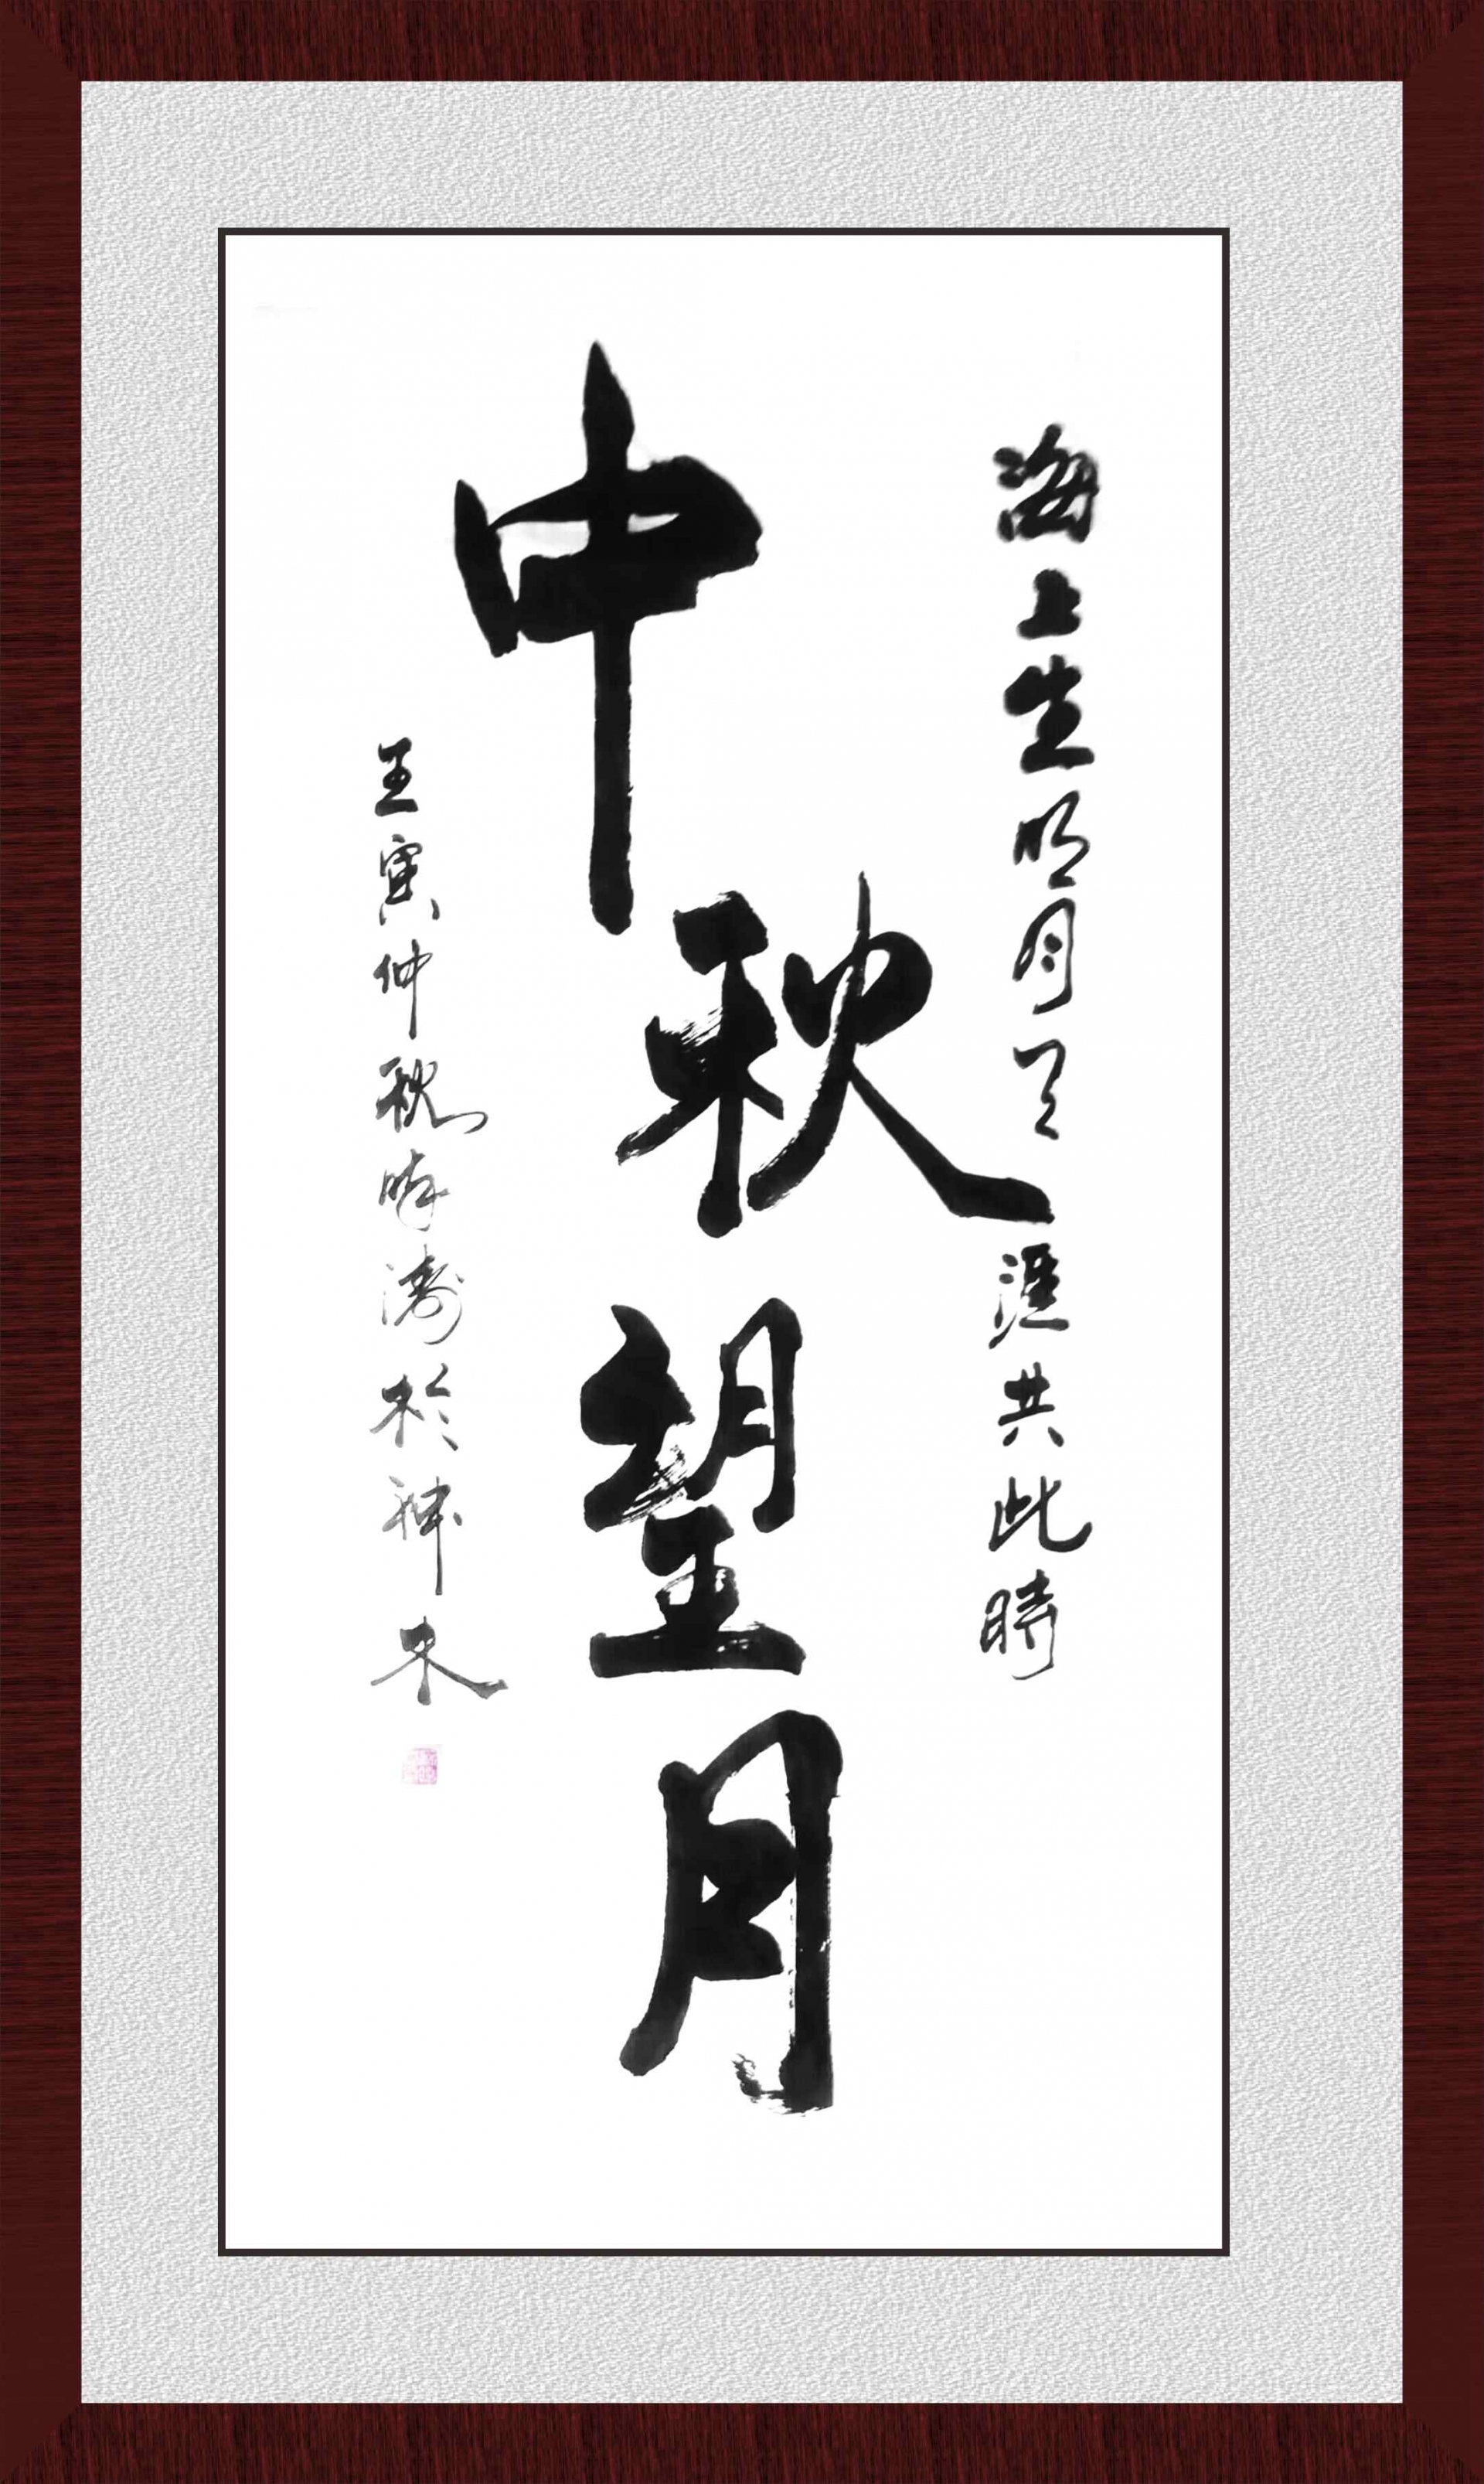 海上生明月天涯共此時
中秋望月
壬寅仲秋濤於神木